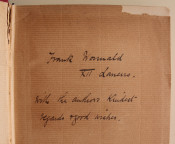 Frank Wormald
XII Lancers.
With the authors kindest
regards & good wishes.